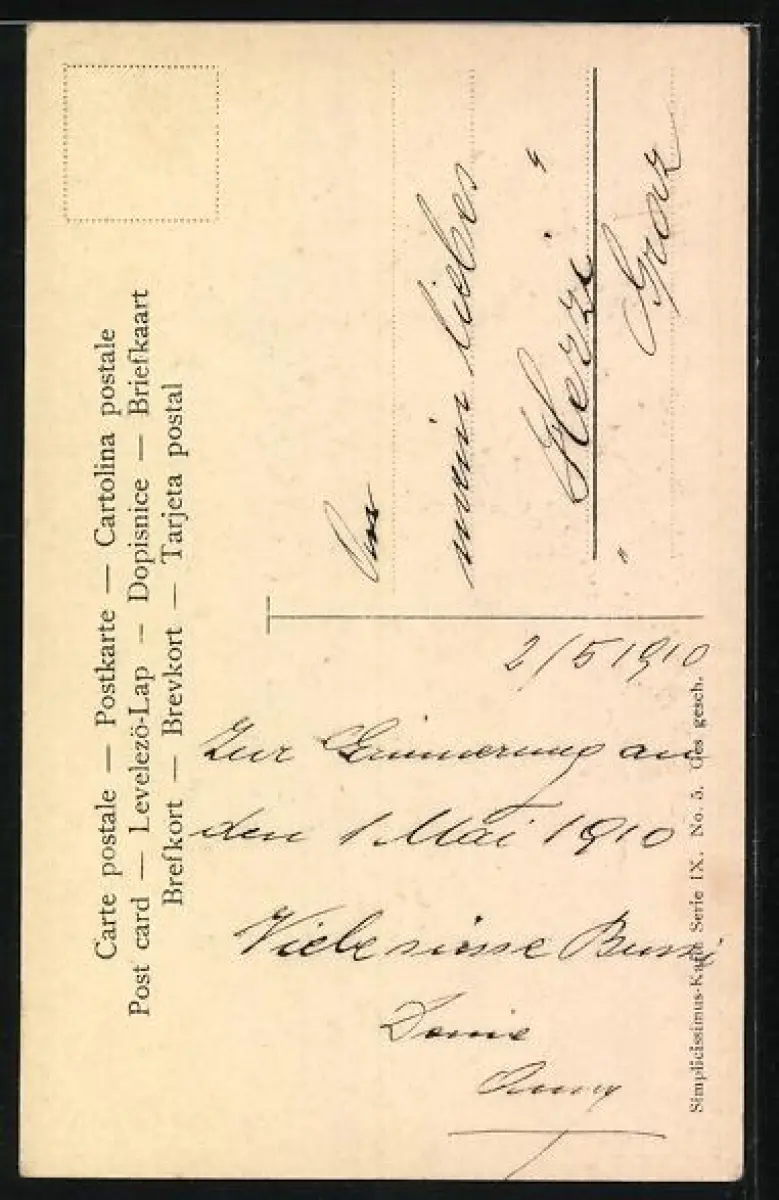 Carte postale — Postkarte — Cartolina postale
Post card — Levelezö-Lap — Dopisnice — Briefkaart
Brefkort — Brevkort — Tarjeta postal
mein liebes
"Herzi"
Graz
2/5 1910
Zur Erinnerung an
den 1 Mai 1910
Viele süsse Bussi
Anny
Simplicissimus-Karte Serie IX. No. 5. Ges gesch.